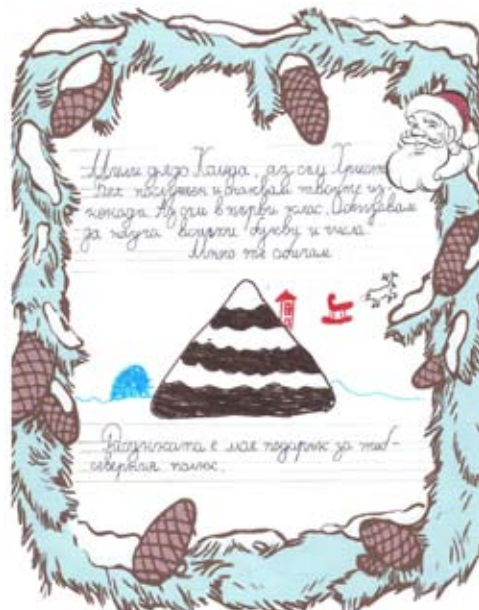 Мили дядо Коледа, аз съм Христ
Бях послушен и очаквам твоите из-
ненади. Аз съм в първи клас. Обещавам
да науча всички букви и числа.
Много те обичам
Рисунката е моя подарък за теб-
северния полюс.